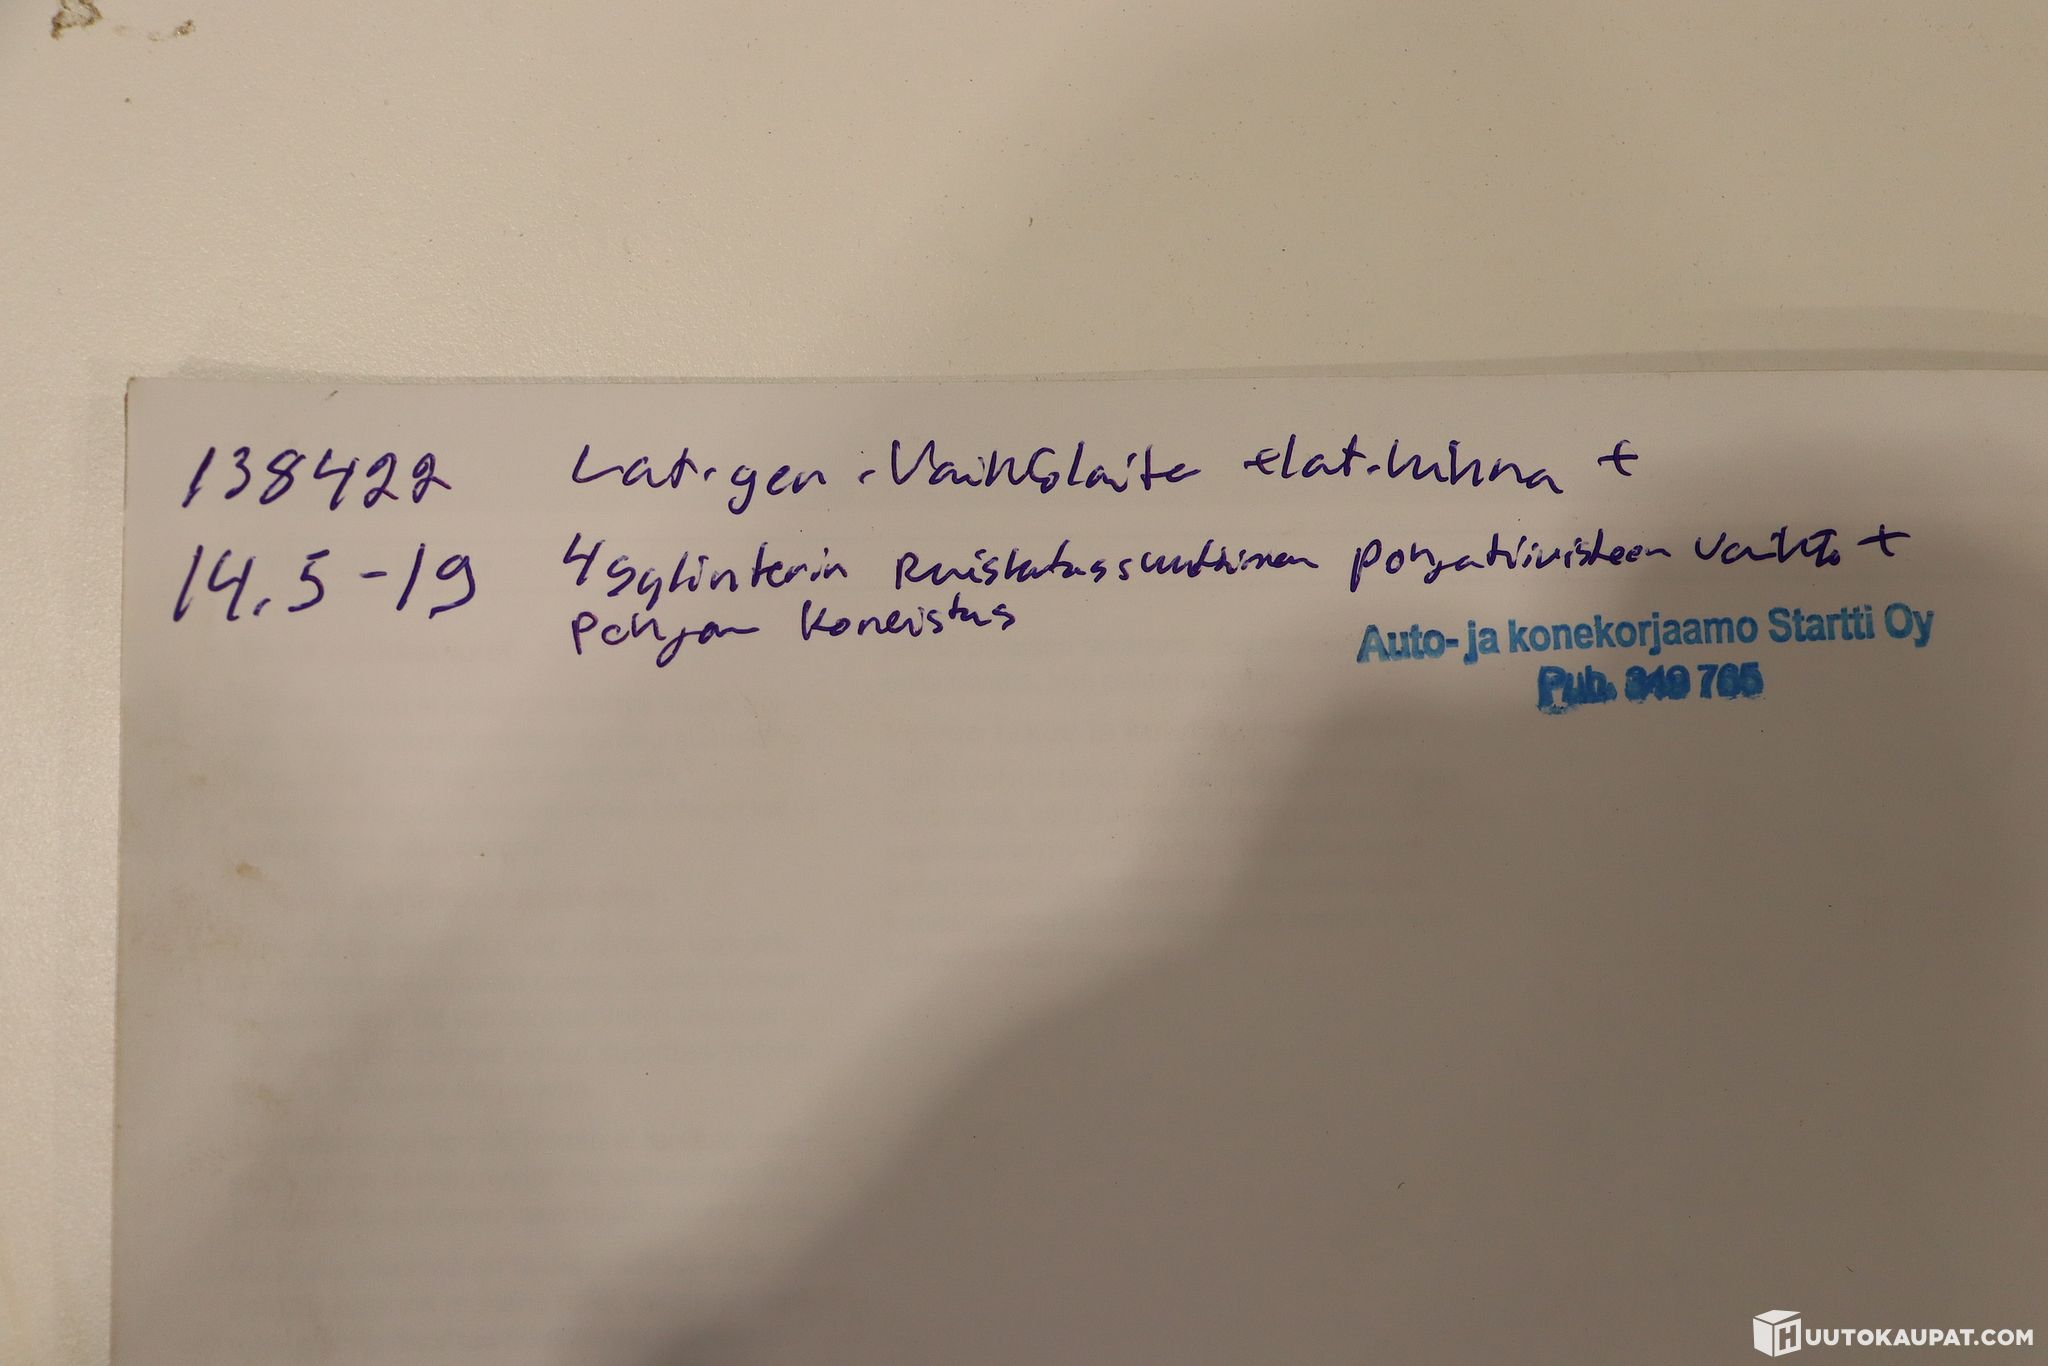 138422 Lat.gen. Vaihtolaite +lat.hihna +
14.5-19 4 sylinterin Ruiskutussuuttimen pohjatiivisteen vaihto +
Pohjan koneistus
Auto- ja konekorjaamo Startti Oy
Puh. 349 765
HUUTOKAUPAT.COM